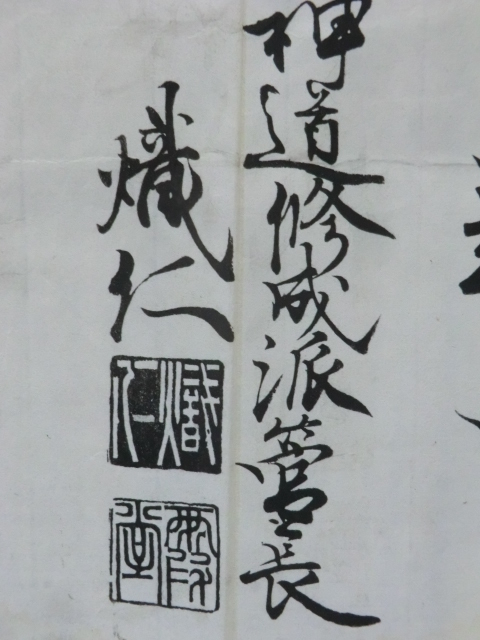 神道修成派管長
熾仁
熾仁
霞堂